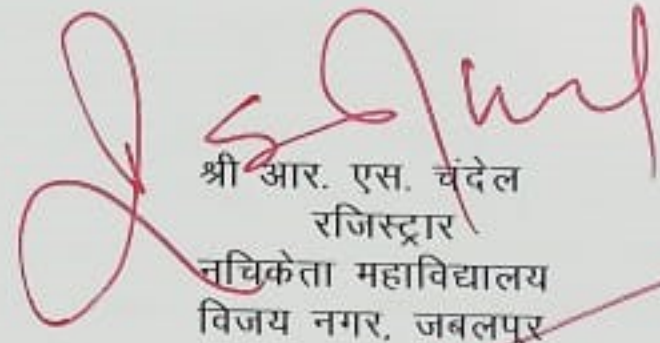 श्री आर. एस. चंदेल
रजिस्ट्रार
नचिकेता महाविद्यालय
विजय नगर, जबलपुर